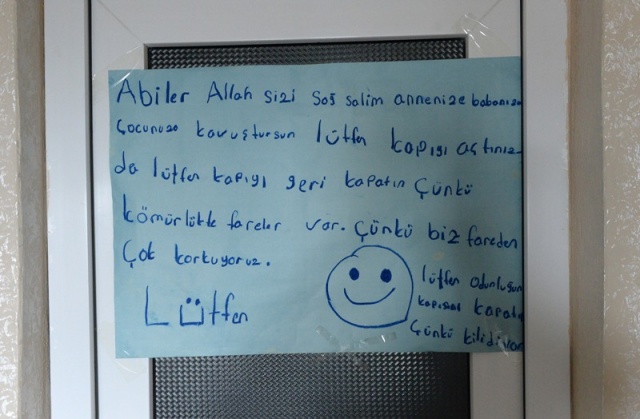 Abiler Allah sizi sağ salim annenize babanıza
çocunuza kavuştursun lütfen kapıyı açtınız
da lütfen kapıyı geri kapatın Çünkü
kömürlükte fareler var. Çünkü biz fareden
Çok korkuyoruz.
Lütfen
lütfen odunluğun
kapısını kapatın
Çünkü kilidi var